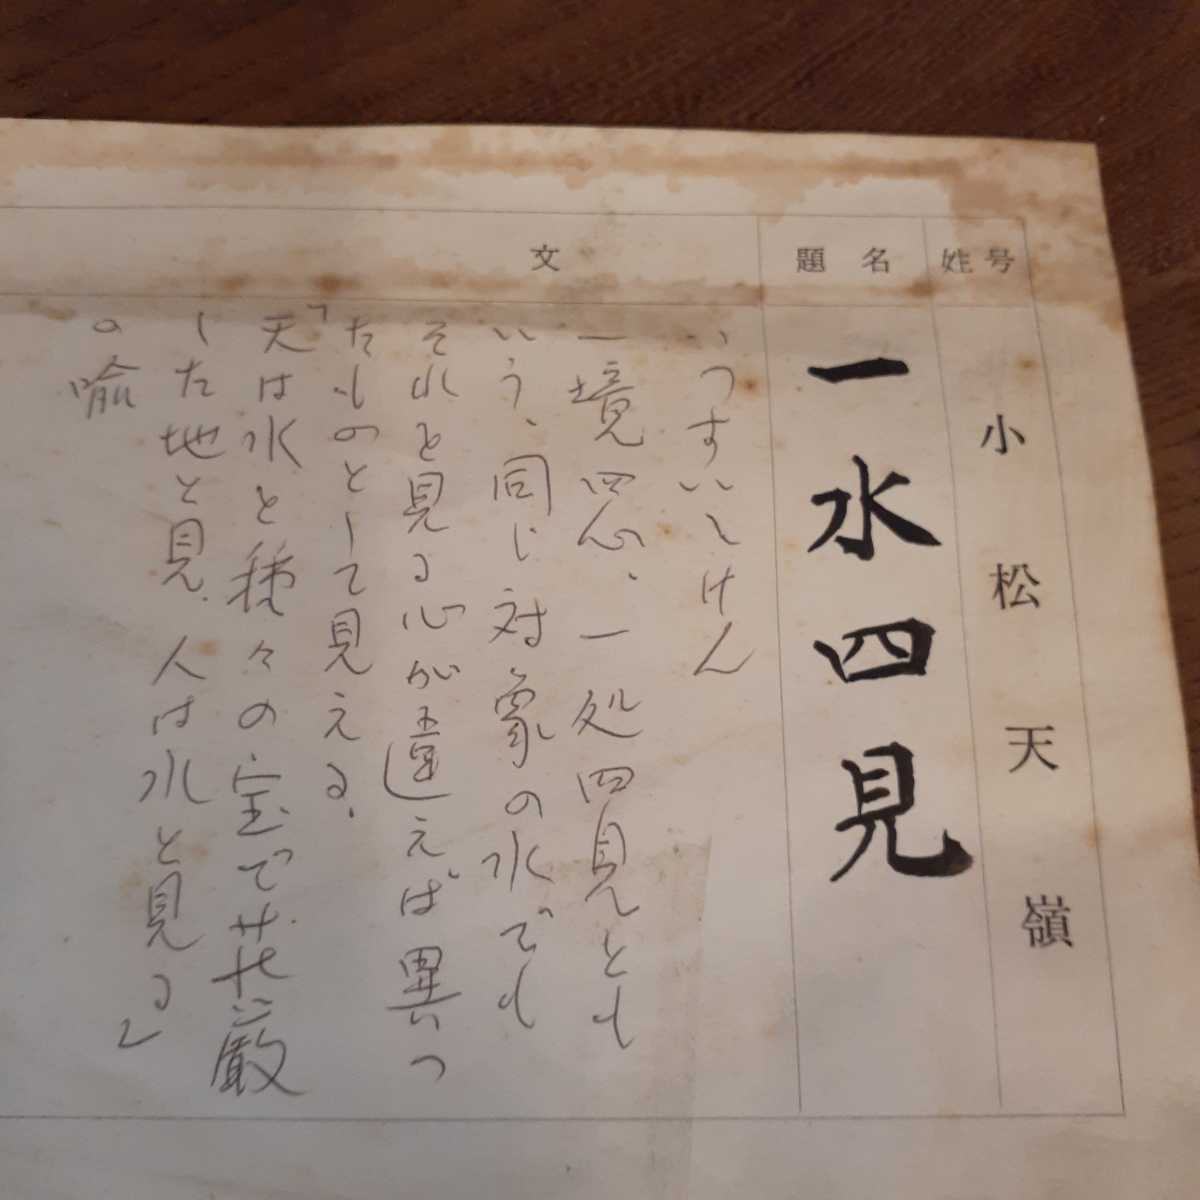 姓号
小松天嶺
題名
一水四見
文
いつすいしけん
一境四心、一処四見とも
いう、同じ対象の水でも
それを見る心が違えば異つ
たものとして見える。
「天は水を種々の宝で荘厳
した地と見、人は水と見る」
の喩